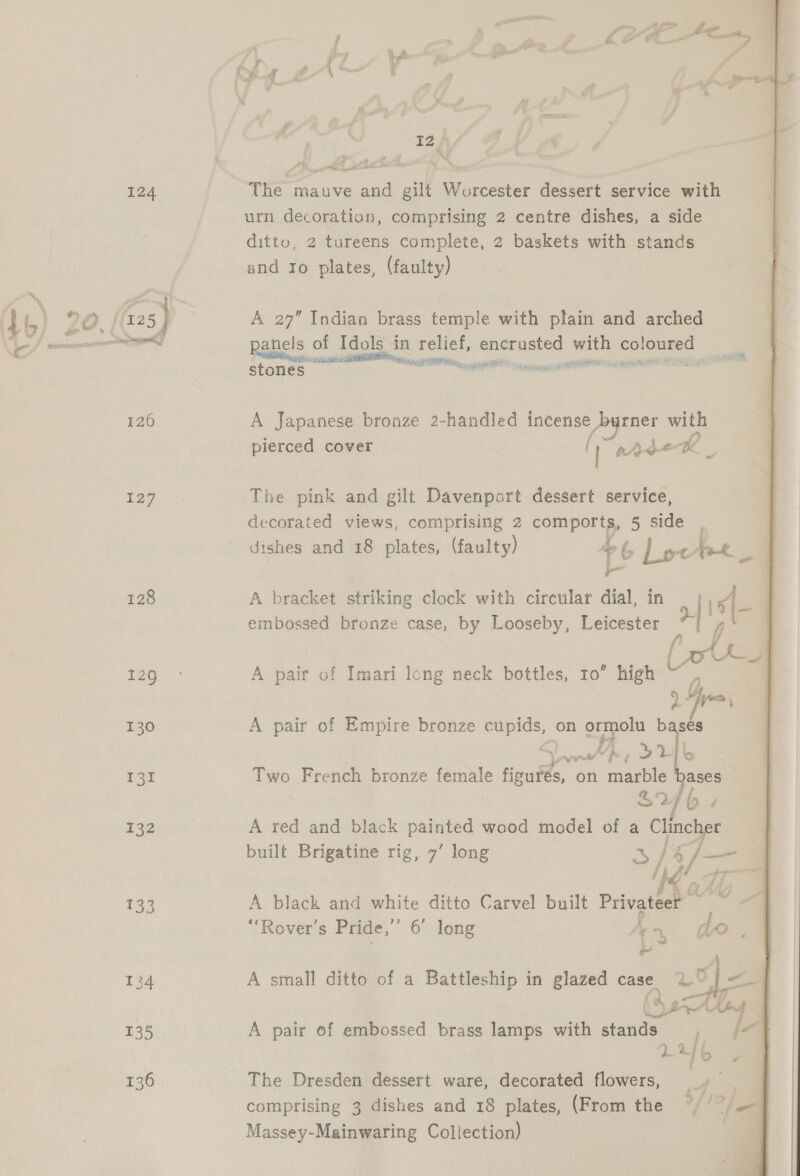 12
124 The mauve and gilt Worcester dessert service with
urn decoration, comprising 2 centre dishes, a side
ditto, 2 tureens complete, 2 baskets with stands
and 10 plates, (faulty)
20. (125) A 27" Indian brass temple with plain and arched
panels of Idols in relief, encrusted with coloured
stones
126 A Japanese bronze 2-handled incense burner with
pierced cover
127 The pink and gilt Davenport dessert service,
decorated views, comprising 2 comports, 5 side
dishes and 18 plates, (faulty)
128 A bracket striking clock with circular dial, in
embossed bronze case, by Looseby, Leicester
129 A pair of Imari long neck bottles, 10" high
130 A pair of Empire bronze cupids, on ormolu bases
131 Two French bronze female figures, on marble bases
132 A red and black painted wood model of a Clincher
built Brigatine rig, 7' long
133 A black and white ditto Carvel built Privateer
"Rover's Pride," 6' long do.
134 A small ditto of a Battleship in glazed case
135 A pair of embossed brass lamps with stands
136 The Dresden dessert ware, decorated flowers,
comprising 3 dishes and 18 plates, (From the
Massey-Mainwaring Collection)